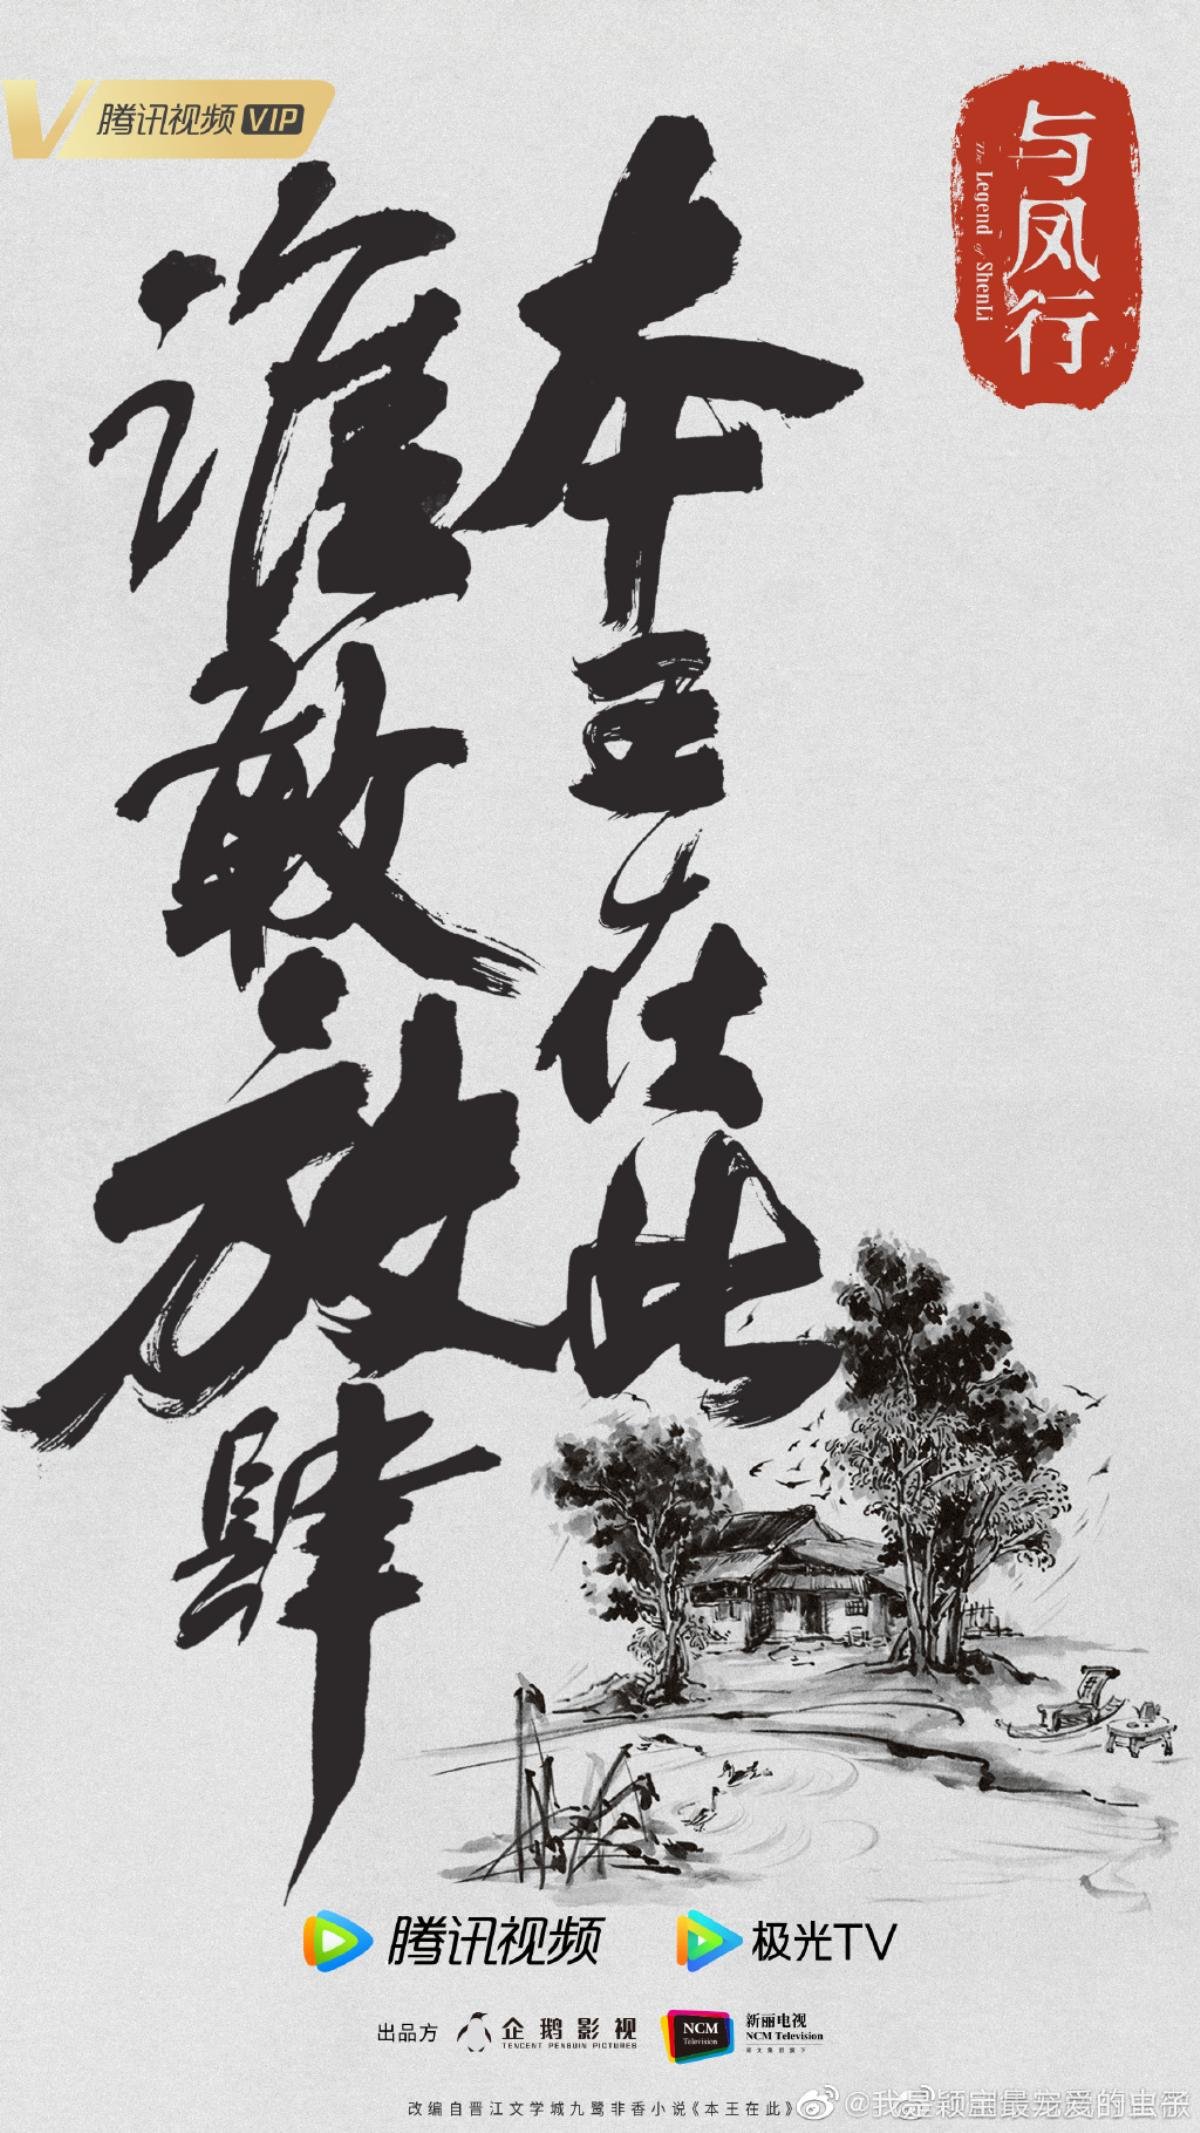 腾讯视频 VIP
与凤行
The Legend of ShenLi
本王在此
谁敢放肆
腾讯视频
极光TV
出品方
企鹅影视
TENCENT PENGUIN PICTURES
NCM
Television
新丽电视
NCM Television
阅文集团旗下
改编自晋江文学城九鹭非香小说《本王在此》
@我是颖宝最宠爱的虫